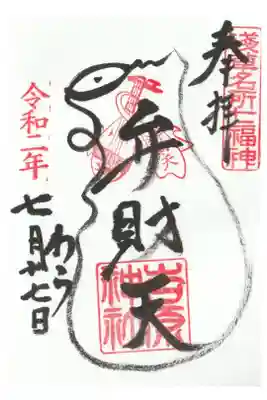 奉拝
淺草名所七福神
弁財天
吉原神社
令和二年
七月廿七日